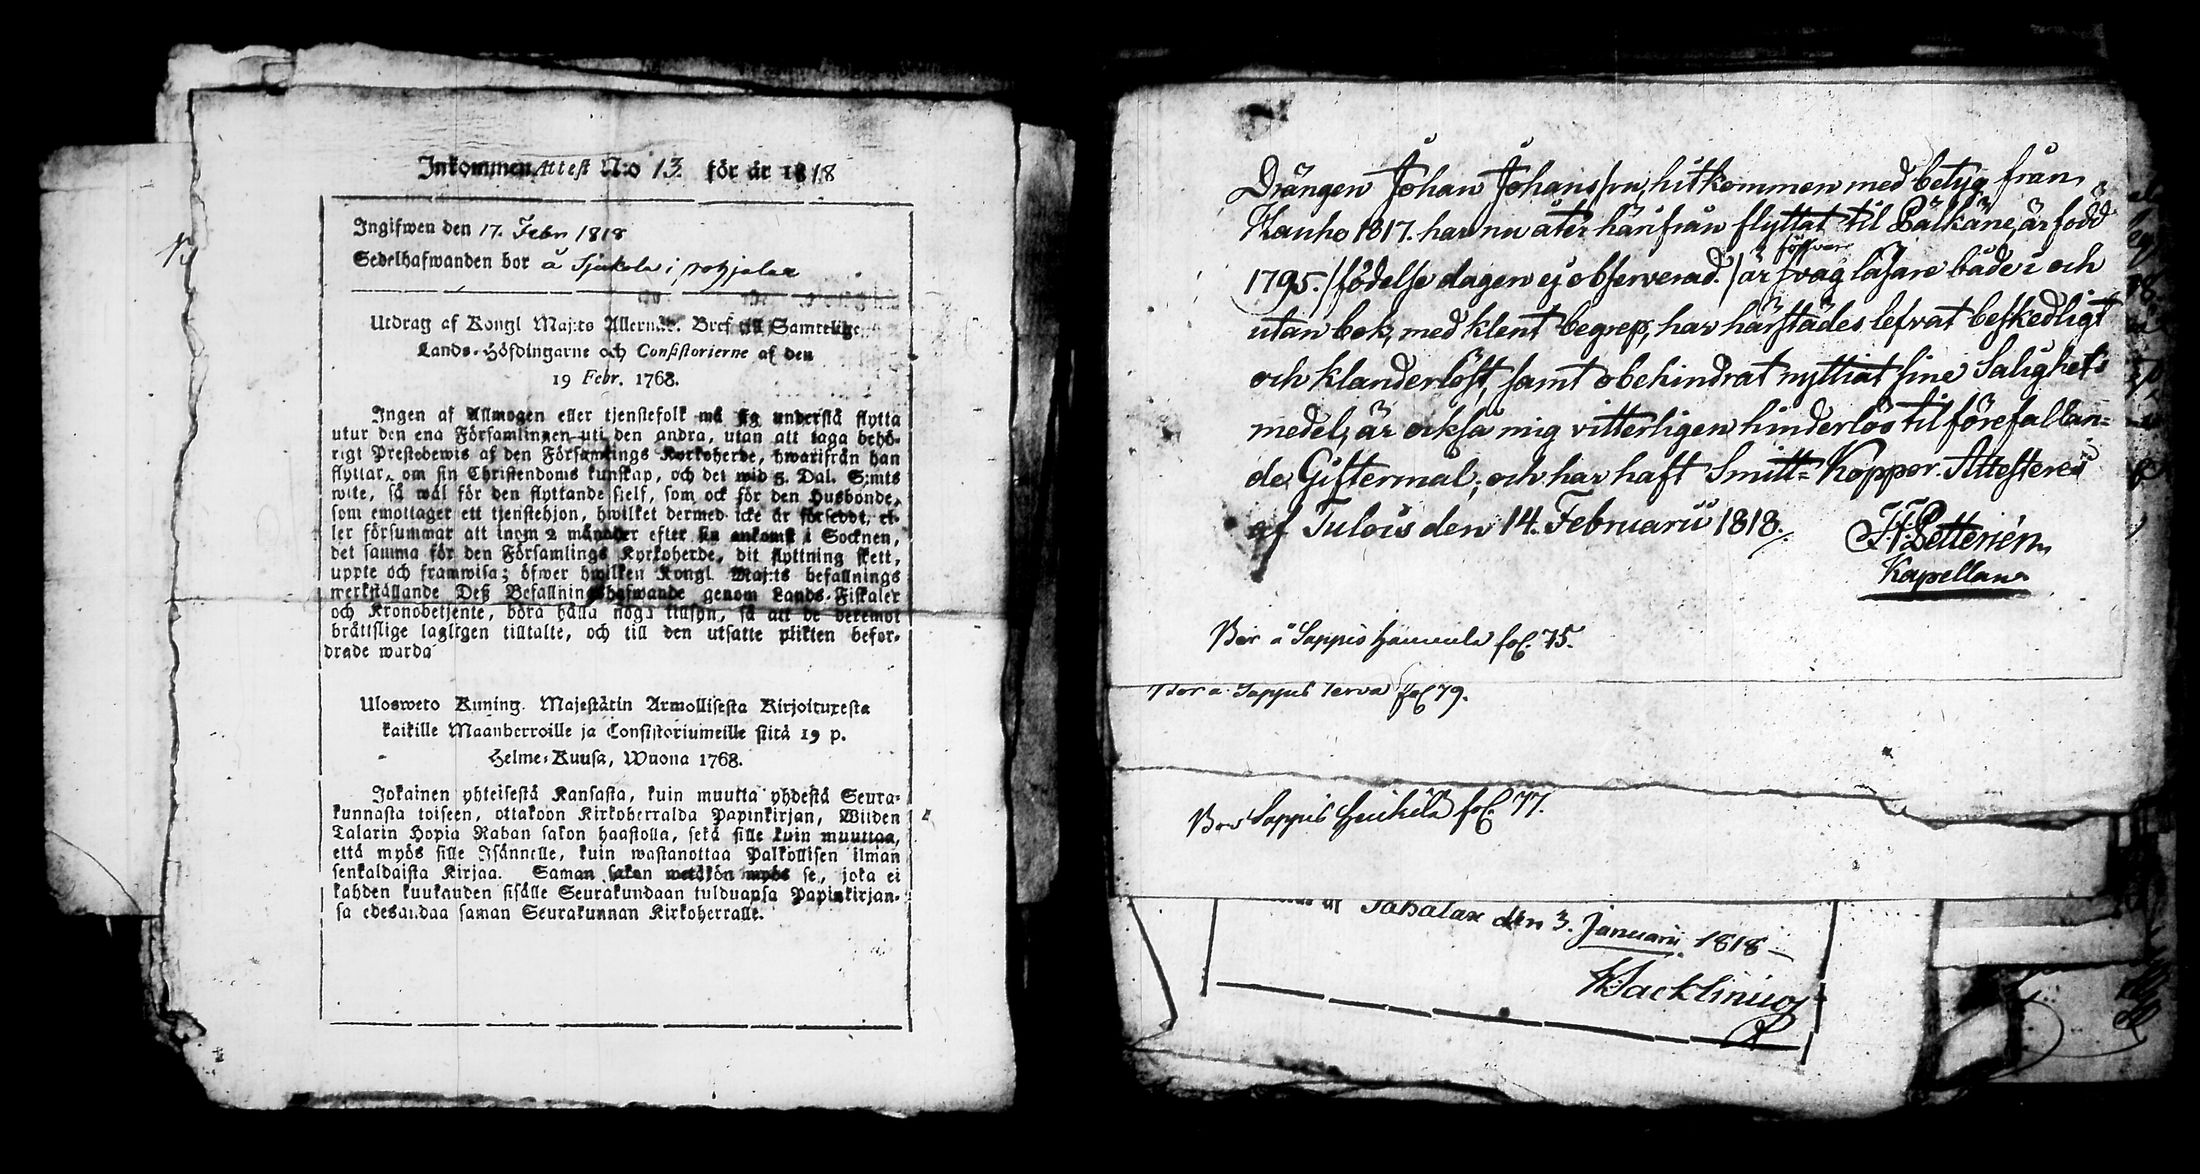 13
Inkommen Attest N:o 13. för år 1818
Ingifwen den 17. Febr 1818
Sedelhafwanden bor å Sjukola i pohjalax
Utdrag af Kongl Maj:ts Allernåd. Bref till Samtelige
Lands-Höfdingarne och Consistorierne af den
19 Febr. 1768.
Ingen af Allmogen eller tjenstefolk må sig understå flytta
utur den ena Församlingen uti den andra, utan att taga behö-
rigt Prestebewis af den Församlings Kyrkoherde, hwarifrån han
flyttar, om sin Christendoms kunskap, och det wid 5. Dal. S:mts
wite, så wäl för den flyttande sielf, som ock för den Husbonde,
som emottager ett tjenstehjon, hwilket dermed icke är försedt, el-
ler försummar att inom 2 månader efter sin ankomst i Socknen,
det samma för den Församlings Kyrkoherde, dit flyttning skett,
uppte och framwisa; öfwer hwilken Kongl. Maj:ts befallnings
werkställande Deß Befallningshafwande genom Lands-Fiskaler
och Kronobetjente, böra hålla noga tillsyn, så att de deremot
bråttslige lagligen tilltalte, och till den utsatte plikten befor-
drade warda
Ulosweto Kuning. Majestätin Armollisesta Kirjoituxesta
kaikille Maanherroille ja Consistoriumeille siitä 19 p.
Helme-Kuusa, Wuona 1768.
Jokainen yhteisestä Kansasta, kuin muutta yhdestä Seura-
kunnasta toiseen, ottakoon Kirkoherralda Papinkirjan, Wiiden
Talarin Hopia Rahan sakon haastolla, sekä sille kuin muuttaa,
että myös sille Isännelle, kuin wastanottaa Palkollisen ilman
senkaldaista Kirjaa. Saman sakon wetäkön myös se, joka ei
kahden kuukauden sisälle Seurakundaan tulduansa Papinkirjan-
sa edesandaa saman Seurakunnan Kirkoherralle.
Drängen Johan Johansson, hitkommen med betyg från
Kauho 1817. har nu åter härifrån flyttat til Pälkäne, är född
1795. /födelse dagen ej observerad./ är svag läsare både i och
utan bok, med klent begrep, har härstädes lefvat beskedligt
och klanderlöst, samt obehindrat nyttiat sine Salighets
medel; är ocksa mig vitterligen hinderlös til förefallan-
de Giftermal; och har haft Smitt-Koppor. Attesteras
af Tulois den 14. Februarii 1818.
H. Petterién
Kapellan
Bor å Sappis Hannula fol. 75.
Bor a Sappis Terva fol 79.
Bor Sappis Heikilä fol. 77.
Sahalax den 3. Januarii 1818
Sacklinius